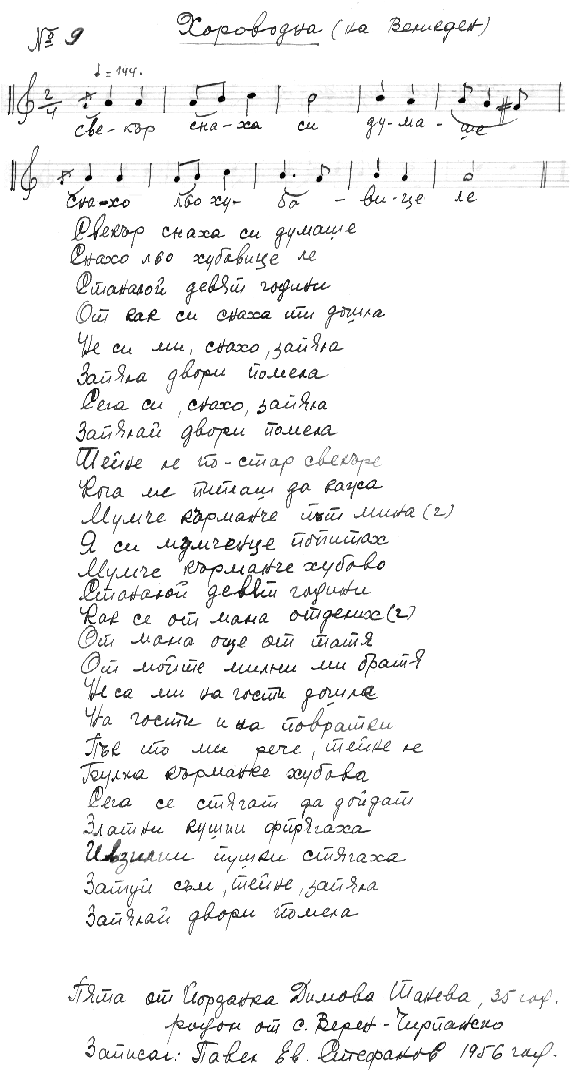 № 9 Хороводна (на Великден)
♩=144.
2/4
све-кър сна-ха си ду-ма-ше
сна-хо льо ху-ба-ви-це ле
Свекър снаха си думаше
Снахо льо хубавице ле
Станалой девят години
От как си снаха ти дошла
Не си ми, снахо, запяла
Запяла двори помела
Сега си, снахо, запяла
Запялай двори помела
Тейне ле по-стар свекъре
Кога ме питаш да кажа
Мумче кърманче път мина (2)
Я си мумченце попитах
Мумче кърманче хубово
Станалой девят години
Как се от мама отделих (2)
От мама още от татя
От мойте милни ми братя
Не са ми на гости дошле
На гости и на повратки
Пък то ми рече, тейне ле
Булка кърманке хубава
Сега се стягат да дойдат
Златни кушии фпрягаха
пушки стягаха
Затуй съм, тейне, запяла
Запялай двори помела
Пята от Йорданка Димова Танева, 35 год.
родом от с. Верен - Чирпанско
Записал: Павел Ев. Стефанов 1956 год.